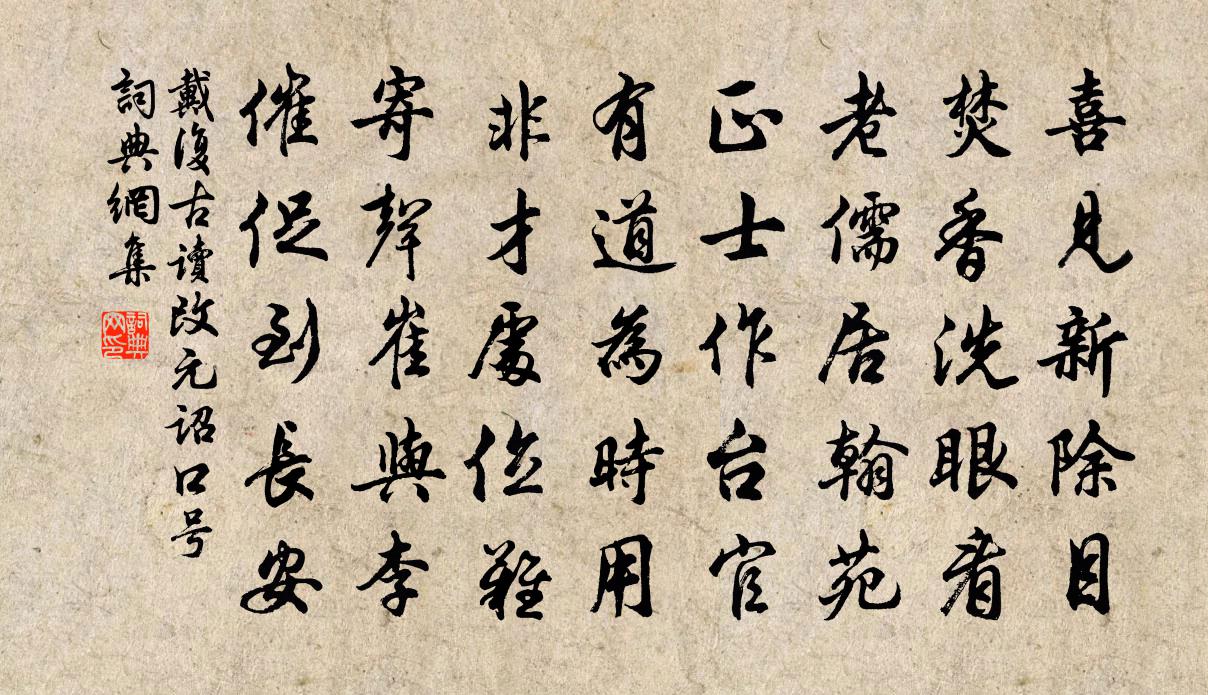 喜見新除目
焚香洗眼看
老儒居翰苑
正士作台官
有道為時用
非才處位難
寄聲崔與李
催促到長安
戴復古讀改元詔口号
詞典網集
詞典网印